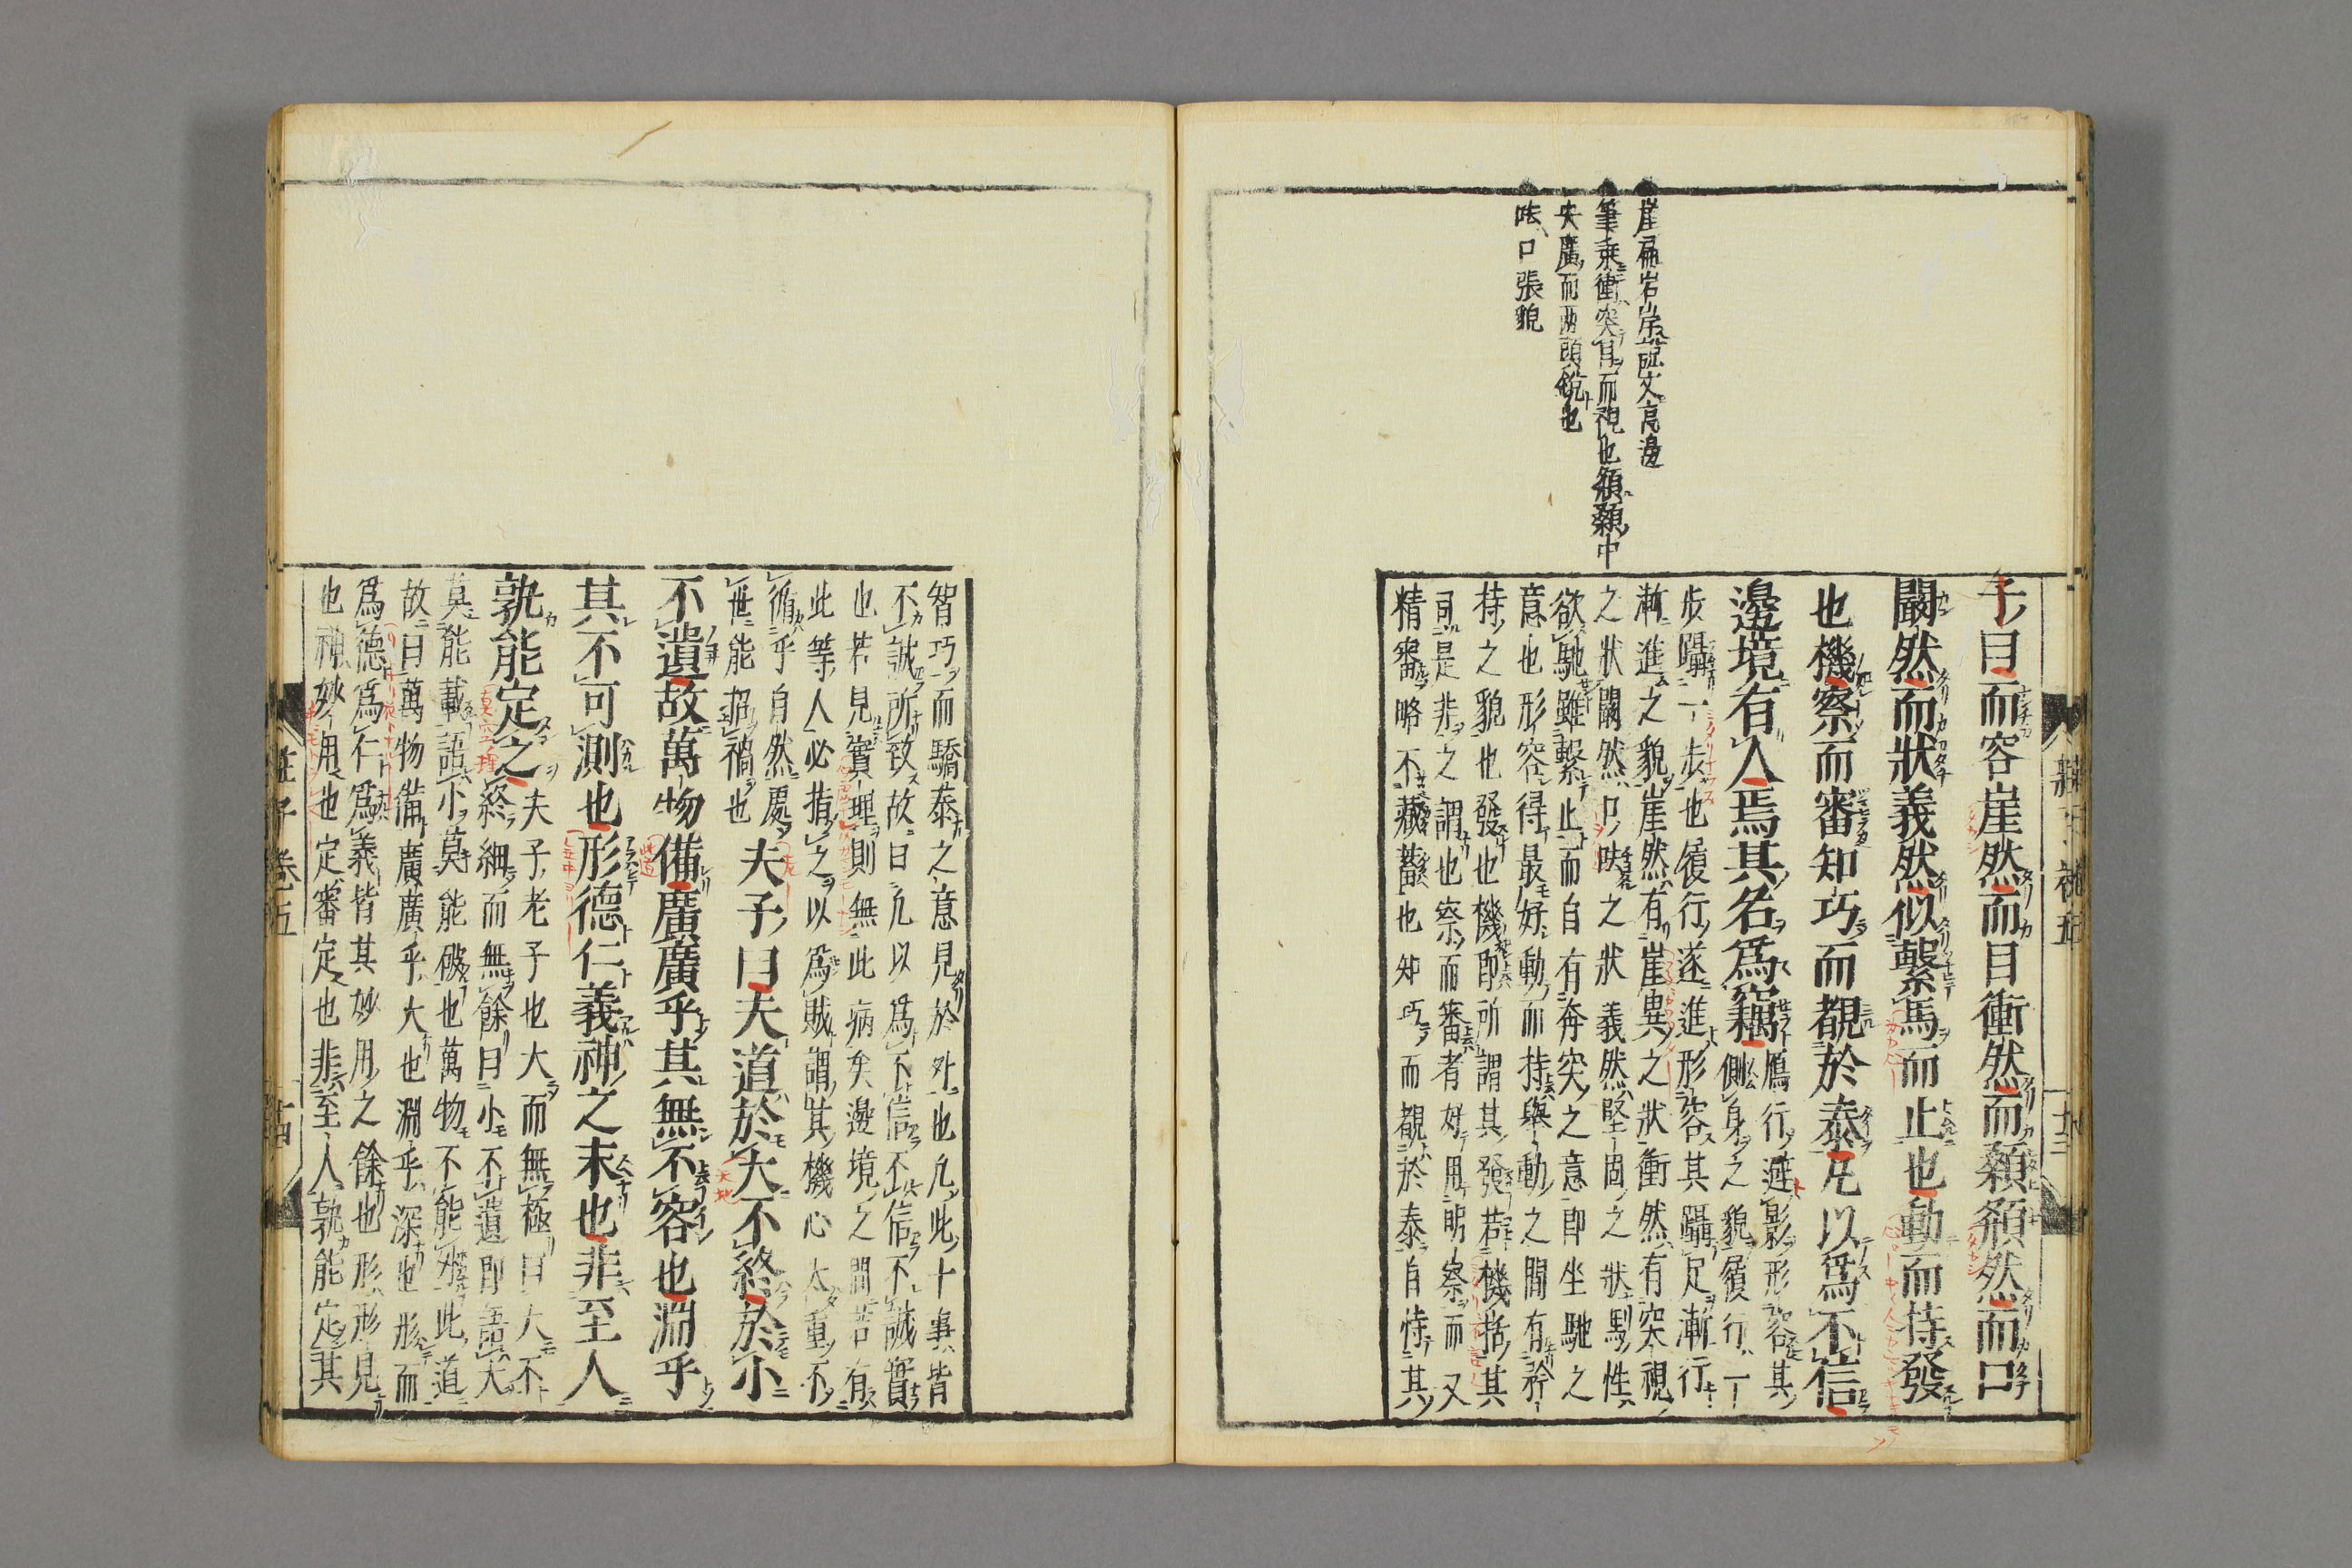 崖字岩岸臨文高邊
筆乘衝突目而視也頯顙中
央廣而兩頭銳也
呿口張貌
子曰而容崖然而目衝然而顙頯然而口
闞然而狀義然似繫馬而止也動而持發
也機察而審知巧而覩於泰凡以為不信
邊境有人焉其名為竊
鴈行避影形容其
側身之貌履行一
步躡一步也履行遂進形容其躡足漸行
漸進之貌崖然有崖異之狀衝然有突視
之狀闞然口呿之狀義然堅固之狀馬性
欲馳雖繫止而自有奔突之意即坐馳之
意也形容得最好動而持舉動之間有矜
持之貌也發也機即所謂其發若機括其
司是非之謂也察而審者好用明察而又
精審略不藏蓄也知巧而覩於泰自恃其
智巧而驕泰之意見於外也凡此十事皆
不誠所致故曰凡以為不信不信不誠實
也若見實理則無此病矣邊境之間若有
此等人必指之以為賊謂其機心太重不
循乎自然處
世能招禍也
夫子曰夫道於大不終於小
不遺故萬物備廣廣乎其無不容也淵乎
其不可測也形德仁義神之末也非至人
孰能定之
夫子老子也大而無極曰大不
終細而無餘曰小不遺即語大
莫能載語小莫能破也萬物不能外此道
故曰萬物備廣廣乎大也淵乎深也形而
為德為仁為義皆其妙用之餘也形形見
也神妙用也定審定也非至人孰能定其
莊子卷五